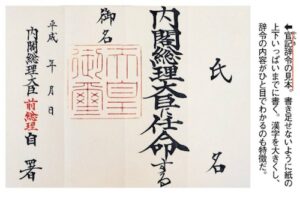 ⬅官記辞令の見本。書き足せないように紙の
上下いっぱいまでに書く。漢字を大きくし、
辞令の内容がひと目でわかるのも特徴だ。
氏名
内閣総理大臣に任命する
御名
天皇
御璽
平成 年 月 日
内閣総理大臣 前総理 自署